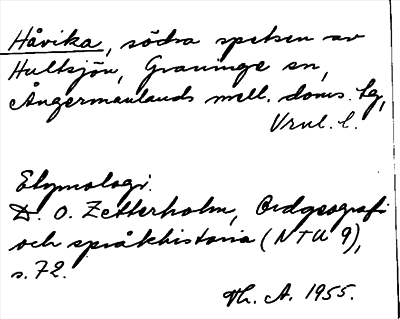 Håvika, södra spetsen av
Hultsjön, Graninge sn,
Ångermanlands mell. doms. tg,
Vrnl. l.
Etymologi.
D. O. Zetterholm, Ordgeografi
och språkhistoria (NTU 9),
s. 72.
Th. A. 1955.